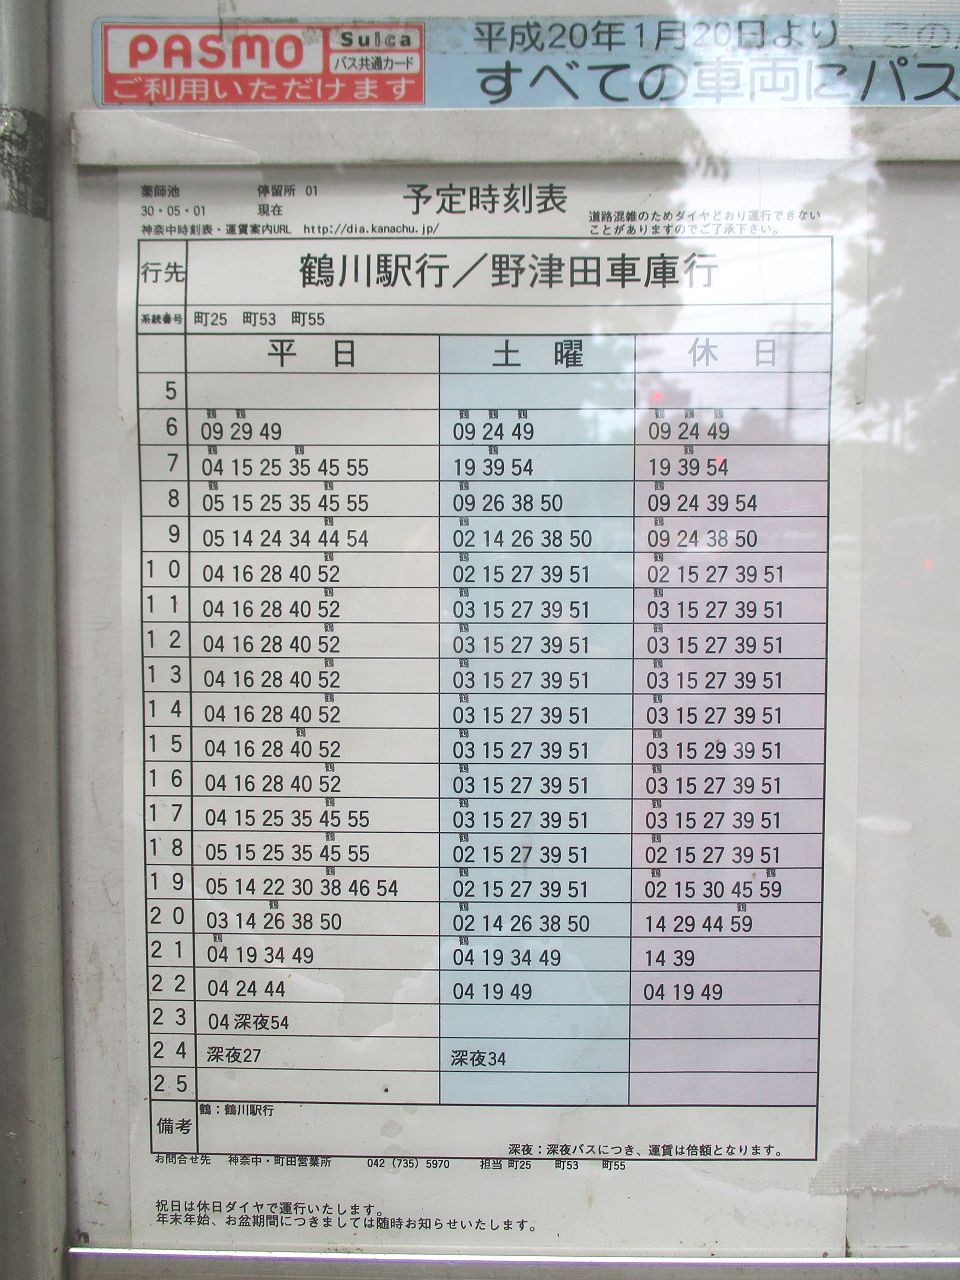 PASMO Suica
バス共通カード
ご利用いただけます
平成20年1月20日より、この
すべての車両にパス
薬師池 停留所 01
30・05・01 現在
予定時刻表
神奈中時刻表・運賃案内URL http://dia.kanachu.jp/
道路混雑のためダイヤどおり運行できない
ことがありますのでご了承下さい。
行先 鶴川駅行／野津田車庫行
系統番号 町25 町53 町55
平日 土曜 休日
5
鶴 鶴 鶴 鶴 鶴 鶴 鶴 鶴
6 09 29 49 09 24 49 09 24 49
鶴 鶴 鶴 鶴
7 04 15 25 35 45 55 19 39 54 19 39 54
鶴 鶴 鶴 鶴
8 05 15 25 35 45 55 09 26 38 50 09 24 39 54
鶴 鶴 鶴
9 05 14 24 34 44 54 02 14 26 38 50 09 24 38 50
鶴 鶴 鶴
10 04 16 28 40 52 02 15 27 39 51 02 15 27 39 51
鶴 鶴 鶴
11 04 16 28 40 52 03 15 27 39 51 03 15 27 39 51
鶴 鶴 鶴
12 04 16 28 40 52 03 15 27 39 51 03 15 27 39 51
鶴 鶴 鶴
13 04 16 28 40 52 03 15 27 39 51 03 15 27 39 51
鶴 鶴 鶴
14 04 16 28 40 52 03 15 27 39 51 03 15 27 39 51
鶴 鶴 鶴
15 04 16 28 40 52 03 15 27 39 51 03 15 29 39 51
鶴 鶴 鶴
16 04 16 28 40 52 03 15 27 39 51 03 15 27 39 51
鶴 鶴 鶴
17 04 15 25 35 45 55 03 15 27 39 51 03 15 27 39 51
鶴 鶴 鶴
18 05 15 25 35 45 55 02 15 27 39 51 02 15 27 39 51
鶴 鶴 鶴 鶴
19 05 14 22 30 38 46 54 02 15 27 39 51 02 15 30 45 59
鶴 鶴 鶴
20 03 14 26 38 50 02 14 26 38 50 14 29 44 59
鶴 鶴
21 04 19 34 49 04 19 34 49 14 39
22 04 24 44 04 19 49 04 19 49
23 04 深夜54
24 深夜27 深夜34
25
備考 鶴：鶴川駅行
深夜：深夜バスにつき、運賃は倍額となります。
お問合せ先 神奈中・町田営業所 042（735）5970 担当 町25 町53 町55
祝日は休日ダイヤで運行いたします。
年末年始、お盆期間につきましては随時お知らせいたします。